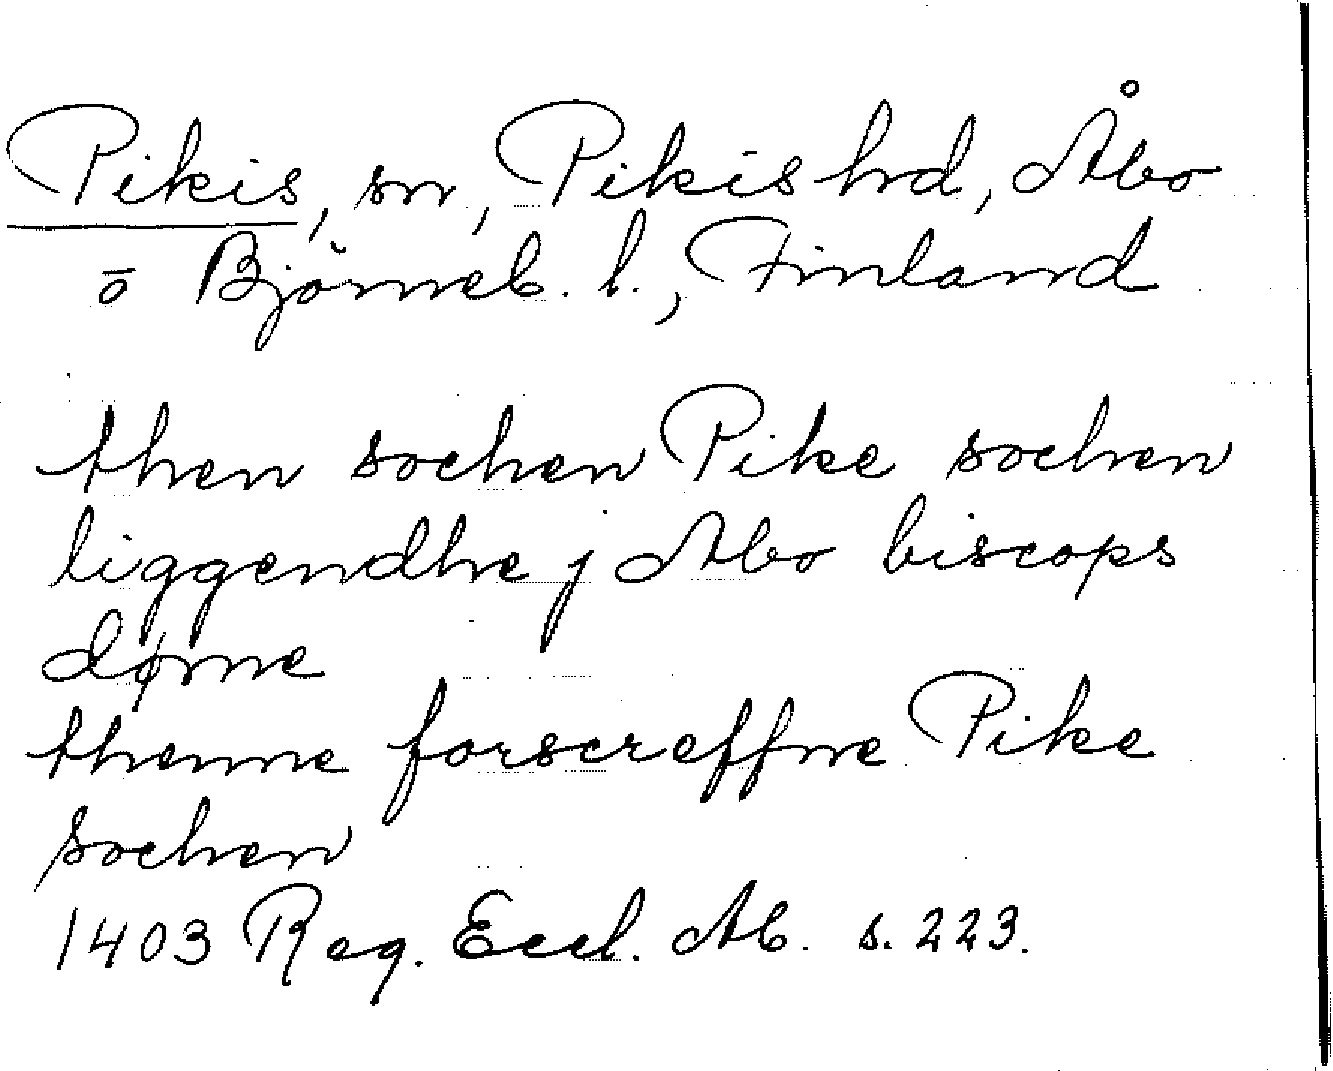 Pikis, sn, Pikis hd, Åbo
o Björneb. l., Finland
then sochen Pike sochen
liggendhe j Abo biscops
døme
thenne forscreffne Pike
sochen
1403 Reg. Eccl. Ab. s. 223.